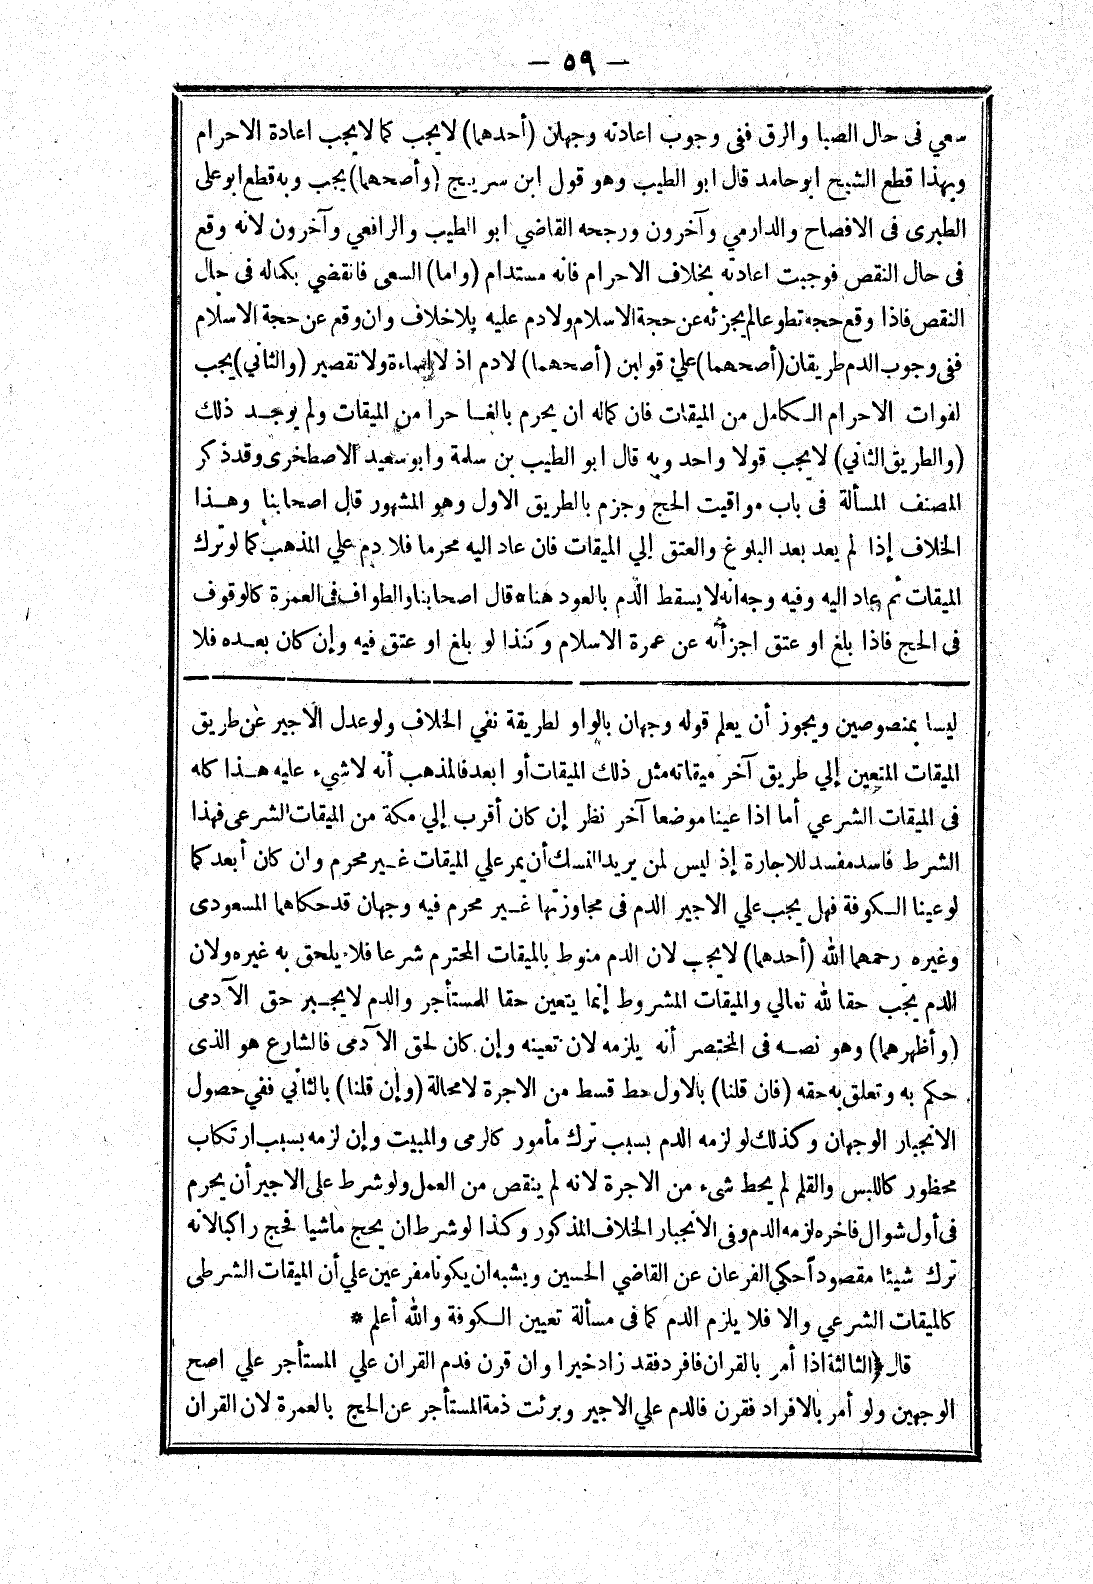 — ٥٩ —
سعي فى حال الصبا والرق ففى وجوب اعادته وجهان (أحدهما) لا يجب كما لا يجب اعادة الاحرام
وبهذا قطع الشيخ ابو حامد قال ابو الطيب وهو قول ابن سريج (وأصحهما) يجب وبه قطع ابو على
الطبرى فى الافصاح والدارمي وآخرون ورجحه القاضي ابو الطيب والرافعي وآخرون لانه وقع
فى حال النقص فوجبت اعادته بخلاف الاحرام فانه مستدام (واما) السعى فانقضي بكماله فى حال
النقص فاذا وقع حجه تطوعا لم يجزئه عن حجة الاسلام ولا دم عليه بلا خلاف وان وقع عن حجة الاسلام
ففى وجوب الدم طريقان (أصحهما) علي قولين (أصحهما) لا دم اذ لا إساءة ولا تقصير (والثاني) يجب
لفوات الاحرام الكامل من الميقات فان كماله ان يحرم بالغا حرا من الميقات ولم يوجد ذلك
(والطريق الثاني) لا يجب قولا واحد وبه قال ابو الطيب بن سلمة وابو سعيد الاصطخرى وقد ذكر
المصنف المسألة فى باب مواقيت الحج وجزم بالطريق الاول وهو المشهور قال اصحابنا وهذا
الخلاف إذا لم يعد بعد البلوغ والعتق إلي الميقات فان عاد اليه محرما فلا دم علي المذهب كما لو ترك
الميقات ثم عاد اليه وفيه وجه انه لا يسقط الدم بالعود هنا * قال اصحابنا والطواف فى العمرة كالوقوف
فى الحج فاذا بلغ او عتق اجزأته عن عمرة الاسلام وكذا لو بلغ او عتق فيه وإن كان بعده فلا
ليسا بمنصوصين ويجوز أن يعلم قوله وجهان بالواو لطريقة نفي الخلاف ولو عدل الاجير عن طريق
الميقات المتعين إلي طريق آخر ميقاته مثل ذلك الميقات أو ابعد فالمذهب أنه لا شيء عليه هذا كله
فى الميقات الشرعي أما اذا عينا موضعا آخر نظر إن كان أقرب إلي مكة من الميقات الشرعى فهذا
الشرط فاسد مفسد للاجارة إذ ليس لمن يريد النسك أن يمر علي الميقات غير محرم وان كان أبعد كما
لو عينا الكوفة فهل يجب علي الاجير الدم فى مجاوزتها غير محرم فيه وجهان قد حكاهما المسعودى
وغيره رحمهما الله (أحدهما) لا يجب لان الدم منوط بالميقات المحترم شرعا فلا يلحق به غيره ولان
الدم يجب حقا لله تعالي والميقات المشروط إنما يتعين حقا للمستأجر والدم لا يجبر حق الآدمى
(وأظهرهما) وهو نصه فى المختصر أنه يلزمه لان تعينه وإن كان لحق الآدمى فالشارع هو الذى
حكم به وتعلق به حقه (فان قلنا) بالاول حط قسط من الاجرة لا محالة (وإن قلنا) بالثاني ففي حصول
الانجبار الوجهان وكذلك لو لزمه الدم بسبب ترك مأمور كالرمى والمبيت وإن لزمه بسبب ارتكاب
محظور كاللبس والقلم لم يحط شىء من الاجرة لانه لم ينقص من العمل ولو شرط على الاجير أن يحرم
فى أول شوال فاخره لزمه الدم وفى الانجبار الخلاف المذكور وكذا لو شرط ان يحج ماشيا فحج راكبا لانه
ترك شيئا مقصودا حكي الفرعان عن القاضي الحسين ويشبه ان يكونا مفرعين علي أن الميقات الشرطى
كالميقات الشرعي والا فلا يلزم الدم كما فى مسألة تعيين الكوفة والله أعلم *
قال ﴿الثالثة اذا أمر بالقران فافرد فقد زاد خيرا وان قرن فدم القران علي المستأجر علي اصح
الوجهين ولو أمر بالافراد فقرن فالدم علي الاجير وبرئت ذمة المستأجر عن الحج بالعمرة لان القران